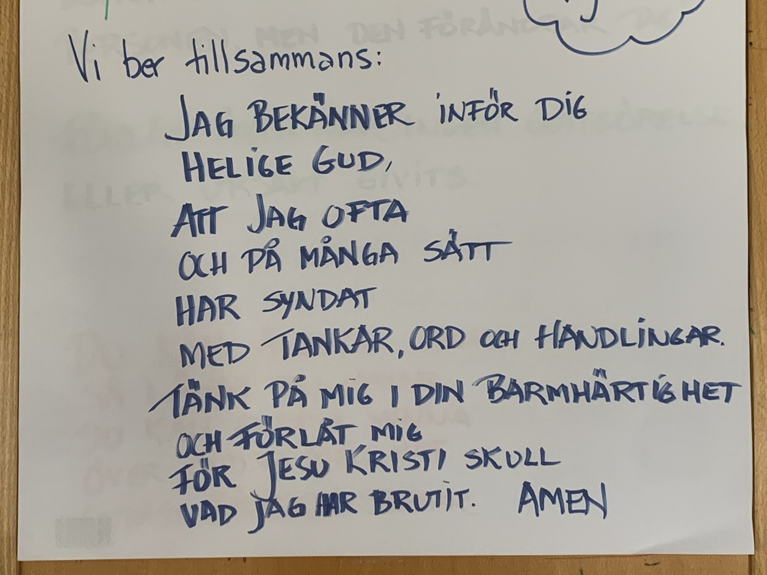 Vi ber tillsammans:
JAG BEKÄNNER INFÖR DIG
HELIGE GUD,
ATT JAG OFTA
OCH PÅ MÅNGA SÄTT
HAR SYNDAT
MED TANKAR, ORD OCH HANDLINGAR.
TÄNK PÅ MIG I DIN BARMHÄRTIGHET
OCH FÖRLÅT MIG
FÖR JESU KRISTI SKULL
VAD JAG HAR BRUTIT. AMEN